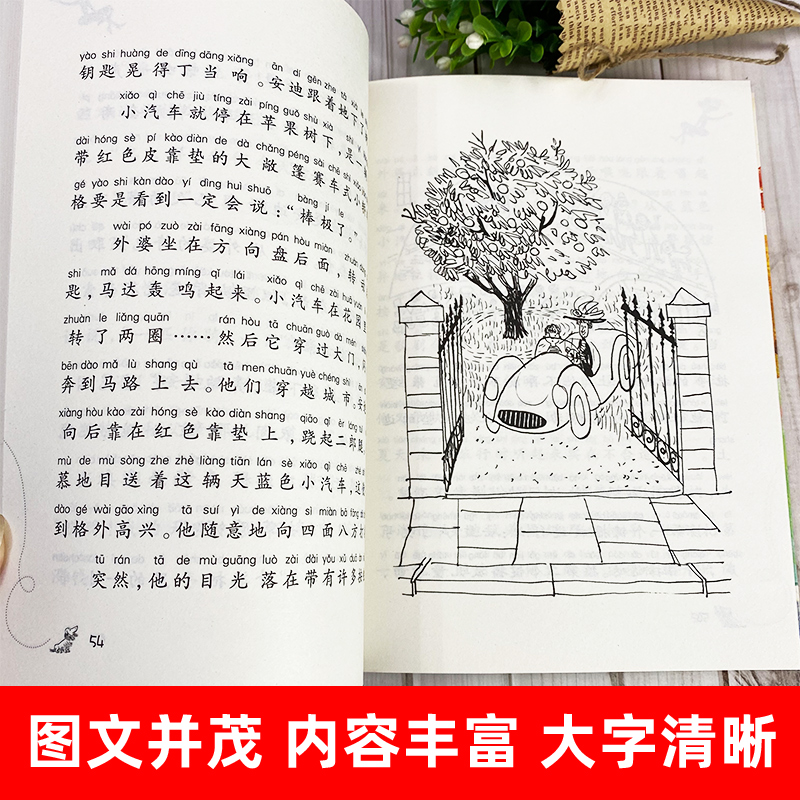 yào shi huàng de dīng dāng xiǎng àn dí gēn zhe tā
钥匙晃得丁当响。安迪跟着她下了
xiǎo qì chē jiù tíng zài píng guǒ shù xià
小汽车就停在苹果树下,是一
dài hóng sè pí kào diàn de dà chǎng péng sài chē shì
带红色皮靠垫的大敞篷赛车式小
gé yào shi kàn dào yí dìng huì shuō bàng jí le
格要是看到一定会说:“棒极了。”
wài pó zuò zài fāng xiàng pán hòu miàn zhuàn
外婆坐在方向盘后面,转
shi mǎ dá hōng míng qǐ lái xiǎo qì chē zài huā yuán
匙,马达轰鸣起来。小汽车在花园里
zhuàn le liǎng quān rán hòu tā chuān guò dà mén
转了两圈……然后它穿过大门,
bēn dào mǎ lù shang qù tā men chuān yuè chéng shì
奔到马路上去。他们穿越城市。安
xiàng hòu kào zài hóng sè kào diàn shang qiāo qǐ èr láng tuǐ
向后靠在红色靠垫上,跷起二郎腿
mù de mù sòng zhe zhè liàng tiān lán sè xiǎo qì chē zhè
慕地目送着这辆天蓝色小汽车,这
dào gé wài gāo xìng tā suí yì de xiàng sì miàn bā fāng
到格外高兴。他随意地向四面八方
tū rán tā de mù guāng luò zài dài yǒu xǔ duō
突然,他的目光落在带有许多
54
图文并茂 内容丰富 大字清晰